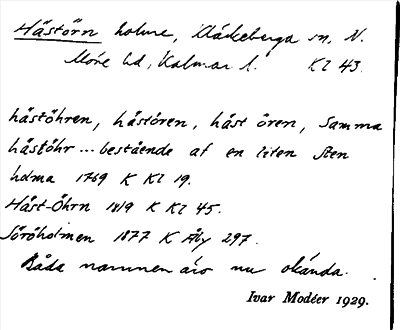 Hästörn holme, Kläckeberga sn, N.
Möre hd, Kalmar l. Kl 43.
håstöhren, håstören, håst ören, Samma
håstöhr ... bestående af en liten sten
holma 1769 K Kl 19.
Håst-Öhrn 1819 K Kl 45.
Söröholmen 1877 K Åby 297.
Båda namnen äro nu okända.
Ivar Modéer 1929.